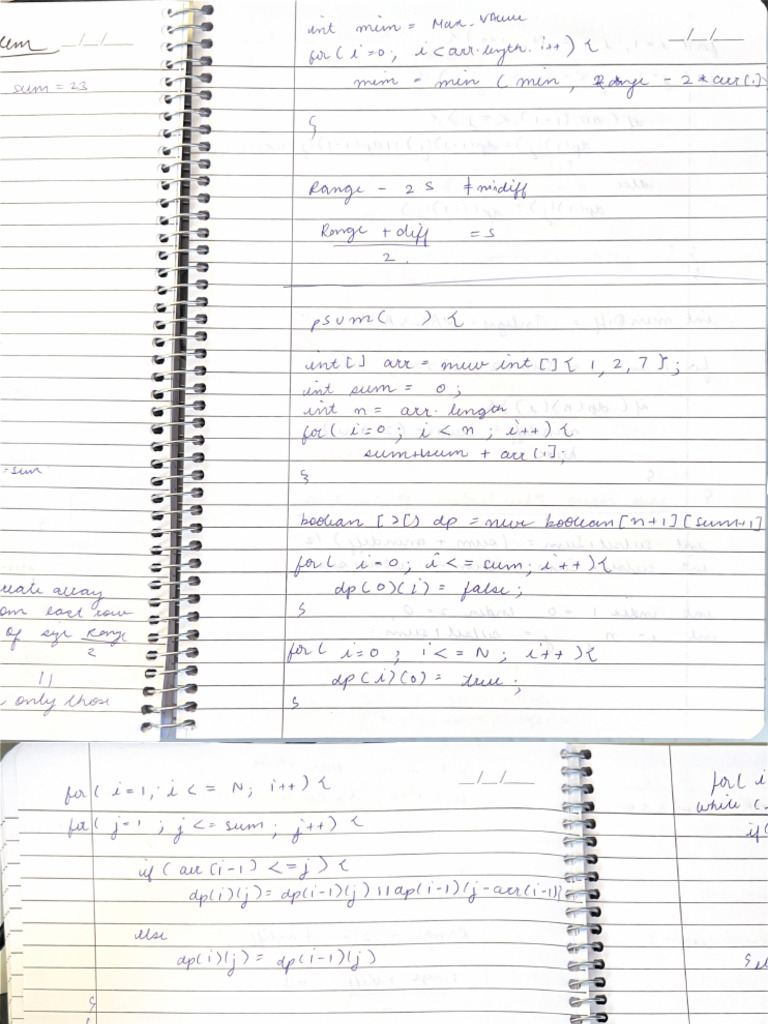 sum = 23
= sum
array
from last row
of size Range
2
||
only those
int min = Max. Value
for( i=0; i<arr.length. i++) {
min = min ( min, Range - 2 * arr(.)
}
Range - 2 S
Range + diff = S
2
psum( ) {
int [ ] arr = new int [ ] { 1, 2, 7 };
int sum = 0;
int n = arr. length
for( i=0 ; i < n ; i++) {
sum + arr [.];
}
boolean [ ][ ] dp = new boolean [n+1] [sum+1]
for( i=0; i <= sum; i++) {
dp(0)(i) = false;
}
for( i=0 ; i <= N ; i++ ) {
dp(i)(0) = true ;
}
for( i=1, i <= N; i++) {
for( j=1 ; j <= sum ; j++) {
if ( arr (i-1) <= j ) {
dp(i)(j) = dp(i-1)(j) || dp(i-1)(j-arr(i-1)}
else
dp(i)(j) = dp(i-1)(j)
}
for( i
while (.
if(